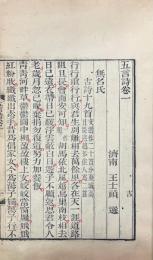 五言詩卷一
濟南 王士 選
無名氏
古詩十九首
行行重行行與君生別離相去萬餘里各在天一涯道路
阻且長會面安可知胡馬依北風越鳥巢南枝相去
日已遠衣帶日已緩浮雲蔽白日遊子不顧返思君令人
老歲月忽已晚棄捐勿復道努力加餐飯
青青河畔草鬱鬱園中柳盈盈樓上女皎皎當窗牖娥娥
紅粉妝纖纖出素手昔為倡家女今為蕩子婦蕩子行不